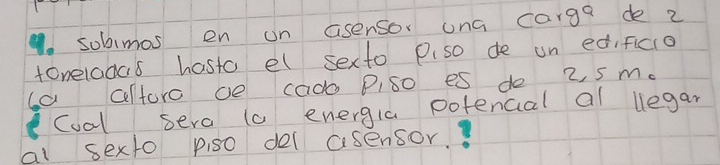 9. Subimos en un asensor una carga de 2
toneladas hasta el sexto piso de un edificio
la altura de cada piso es de 2,5 m.
¿Cual sera la energia potencial al llegar
al sexto piso del asensor.?